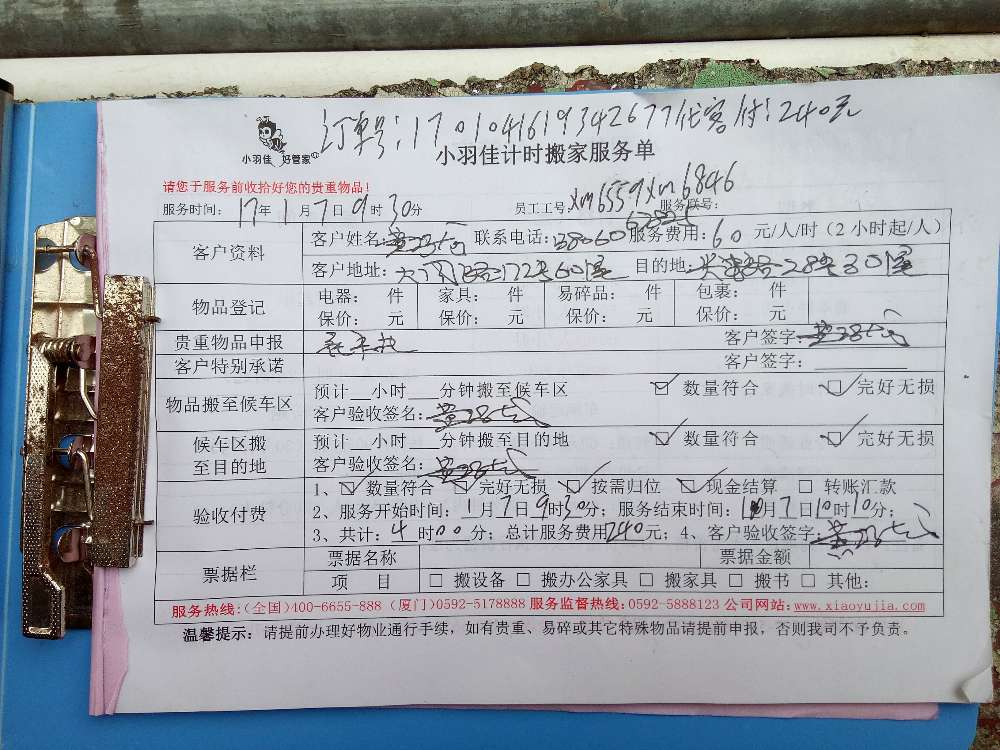 订单号：1701041619342677代客付：240元
小羽佳 好管家
小羽佳计时搬家服务单
请您于服务前收拾好您的贵重物品！
服务时间：17年1月7日9时30分 员工工号：xm6559xm6846 服务联号：
客户资料 客户姓名： 联系电话： 服务费用：60元/人/时（2小时起/人）
客户地址： 目的地：
物品登记 电器： 件 家具： 件 易碎品： 件 包裹： 件
保价： 元 保价： 元 保价： 元 保价： 元
贵重物品申报 客户签字：
客户特别承诺 客户签字：
物品搬至候车区 预计__小时___分钟搬至候车区 ☑ 数量符合 ☑ 完好无损
客户验收签名：
候车区搬至目的地 预计__小时___分钟搬至目的地 ☑ 数量符合 ☑ 完好无损
客户验收签名：
验收付费 1、☑ 数量符合 ☑ 完好无损 ☑ 按需归位 ☑ 现金结算 □ 转账汇款
2、服务开始时间：1月7日9时30分；服务结束时间：1月7日10时10分；
3、共计：4时00分；总计服务费用240元；4、客户验收签字：
票据栏 票据名称 票据金额
项 目 □ 搬设备 □ 搬办公家具 □ 搬家具 □ 搬书 □ 其他：
服务热线:(全国)400-6655-888 (厦门)0592-5178888 服务监督热线:0592-5888123 公司网站:www.xiaoyujia.com
温馨提示：请提前办理好物业通行手续，如有贵重、易碎或其它特殊物品请提前申报，否则我司不予负责。